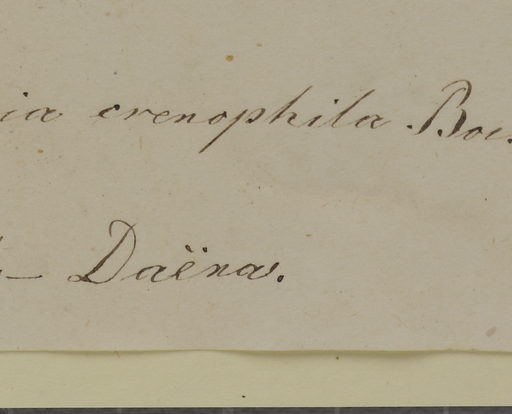 ia crenophila Boi.
– Daëna.